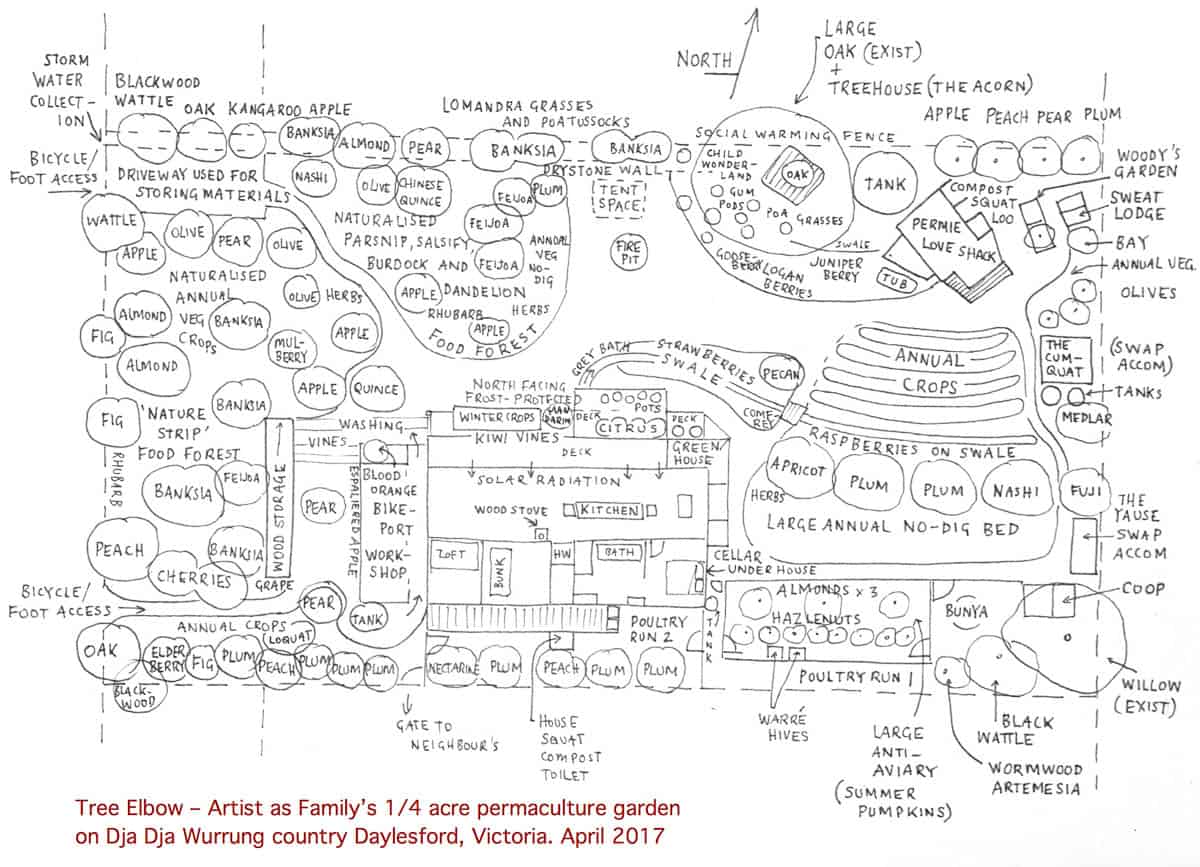 STORM
WATER
COLLECT-
ION
BLACKWOOD
WATTLE
OAK
KANGAROO APPLE
BANKSIA
ALMOND
PEAR
LOMANDRA GRASSES
AND POA TUSSOCKS
BANKSIA
BANKSIA
NORTH
LARGE
OAK (EXIST)
+
TREEHOUSE (THE ACORN)
SOCIAL WARMING FENCE
APPLE PEACH PEAR PLUM
BICYCLE/
FOOT ACCESS
DRIVEWAY USED FOR
STORING MATERIALS
NASHI
OLIVE
CHINESE
QUINCE
FEIJOA
PLUM
DRYSTONE WALL
TENT
SPACE
CHILD
WONDER-
LAND
GUM
PODS
OAK
POA
GRASSES
TANK
COMPOST
SQUAT
LOO
PERMIE
LOVE SHACK
TUB
WOODY'S
GARDEN
SWEAT
LODGE
BAY
ANNUAL VEG.
OLIVES
WATTLE
APPLE
OLIVE
PEAR
OLIVE
NATURALISED
PARSNIP, SALSIFY,
BURDOCK AND
DANDELION
FEIJOA
FEIJOA
ANNUAL
VEG
NO-
DIG
HERBS
APPLE
RHUBARB
APPLE
FOOD FOREST
FIRE
PIT
SWALE
JUNIPER
BERRY
GOOSE-
BERRY
LOGAN
BERRIES
NATURALISED
ANNUAL
VEG
CROPS
OLIVE
HERBS
ALMOND
BANKSIA
MUL-
BERRY
APPLE
FIG
ALMOND
APPLE
QUINCE
FIG
BANKSIA
'NATURE
STRIP'
FOOD FOREST
RHUBARB
BANKSIA
FEIJOA
PEACH
BANKSIA
CHERRIES
GRAPE
WOOD STORAGE
WASHING
VINES
PEAR
ESPALIERED APPLE
BLOOD
ORANGE
BIKE-
PORT
WORK-
SHOP
TANK
PEAR
NORTH FACING
FROST-PROTECTED
WINTER CROPS
MAN
DARIN
DECK
POTS
CITRUS
DECK
KIWI VINES
DECK
GREEN
HOUSE
GREY BATH
STRAWBERRIES
SWALE
PECAN
COMF-
REY
SOLAR RADIATION
WOOD STOVE
KITCHEN
LOFT
BUNK
HW
BATH
CELLAR
UNDER HOUSE
TANK
POULTRY
RUN 2
ANNUAL
CROPS
RASPBERRIES ON SWALE
APRICOT
PLUM
PLUM
NASHI
FUJI
HERBS
LARGE ANNUAL NO-DIG BED
THE
CUM-
QUAT
(SWAP
ACCOM)
TANKS
MEDLAR
THE
YAUSE
SWAP
ACCOM
COOP
ALMONDS x 3
HAZLENUTS
BUNYA
POULTRY RUN 1
WILLOW
(EXIST)
BICYCLE/
FOOT ACCESS
ANNUAL CROPS
LOQUAT
OAK
ELDER
BERRY
FIG
PLUM
PEACH
PLUM
PLUM
PLUM
BLACK-
WOOD
NECTARINE
PLUM
PEACH
PLUM
PLUM
GATE TO
NEIGHBOUR'S
HOUSE
SQUAT
COMPOST
TOILET
WARRÉ
HIVES
LARGE
ANTI-
AVIARY
(SUMMER
PUMPKINS)
BLACK
WATTLE
WORMWOOD
ARTEMESIA
Tree Elbow – Artist as Family's 1/4 acre permaculture garden
on Dja Dja Wurrung country Daylesford, Victoria. April 2017